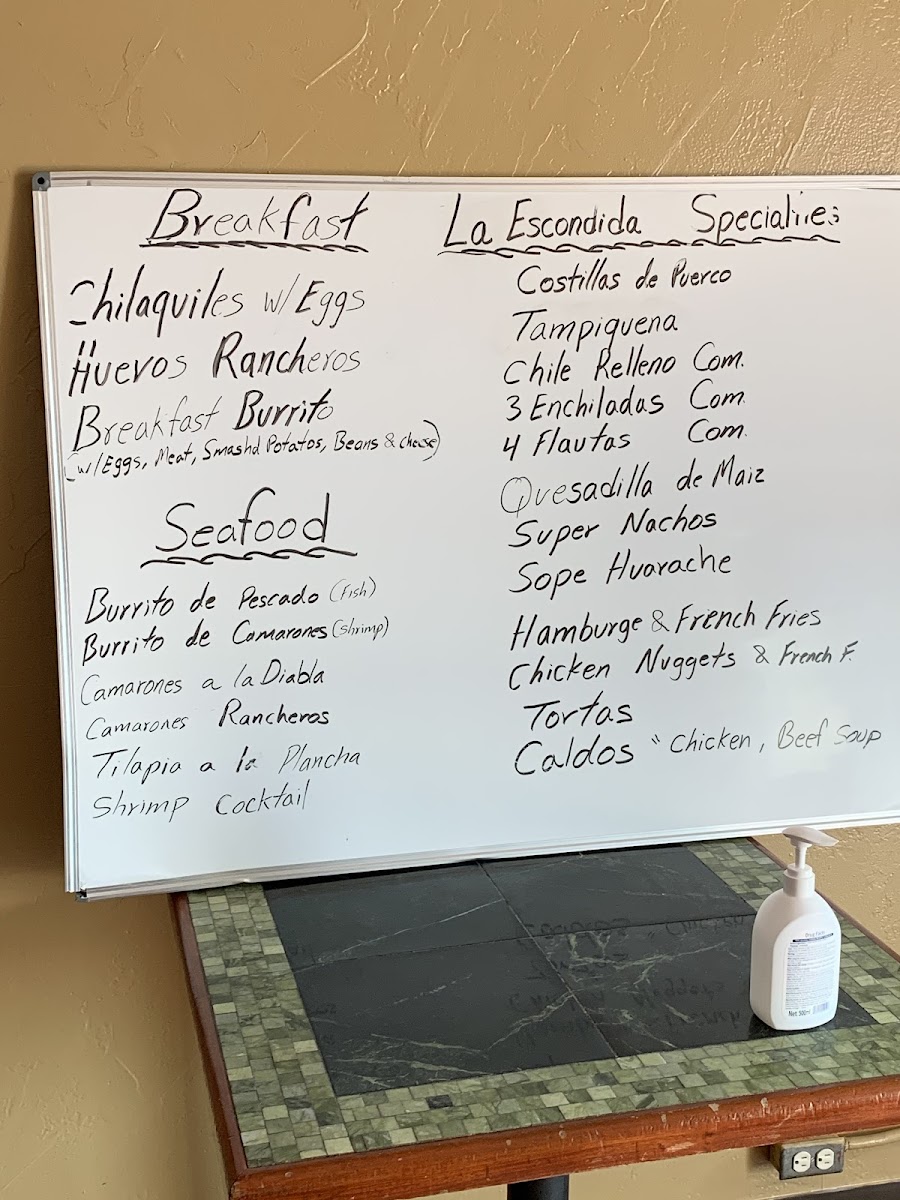 Breakfast
Chilaquiles w/Eggs
Huevos Rancheros
Breakfast Burrito
(w/Eggs, Meat, Smashd Potatos, Beans & cheese)
Seafood
Burrito de Pescado (Fish)
Burrito de Camarones (shrimp)
Camarones a la Diabla
Camarones Rancheros
Tilapia a la Plancha
Shrimp Cocktail
La Escondida Specialties
Costillas de Puerco
Tampiquena
Chile Relleno Com.
3 Enchiladas Com.
4 Flautas Com.
Quesadilla de Maiz
Super Nachos
Sope Huarache
Hamburge & French Fries
Chicken Nuggets & French F.
Tortas
Caldos " Chicken, Beef Soup
Drug Facts